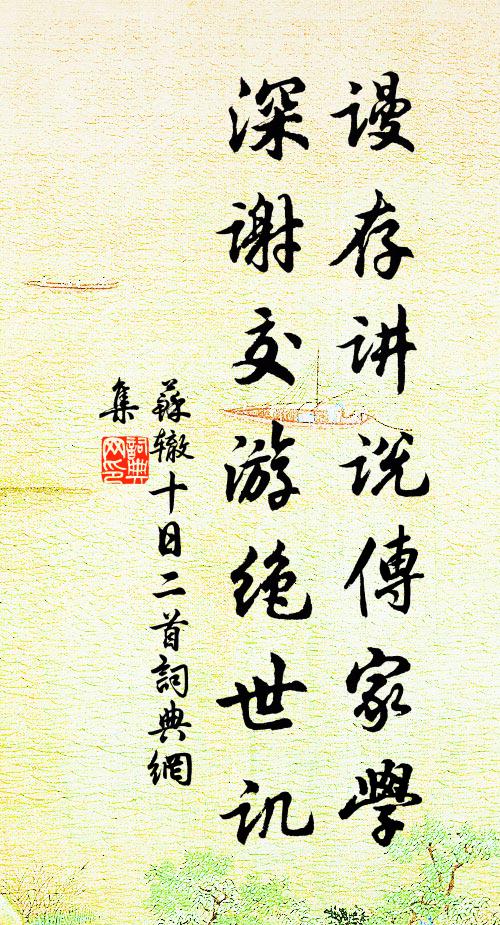 谩存讲说傳家學
深谢交游绝世讥
蘇辙十日二首詞典網
集
詞典
网印